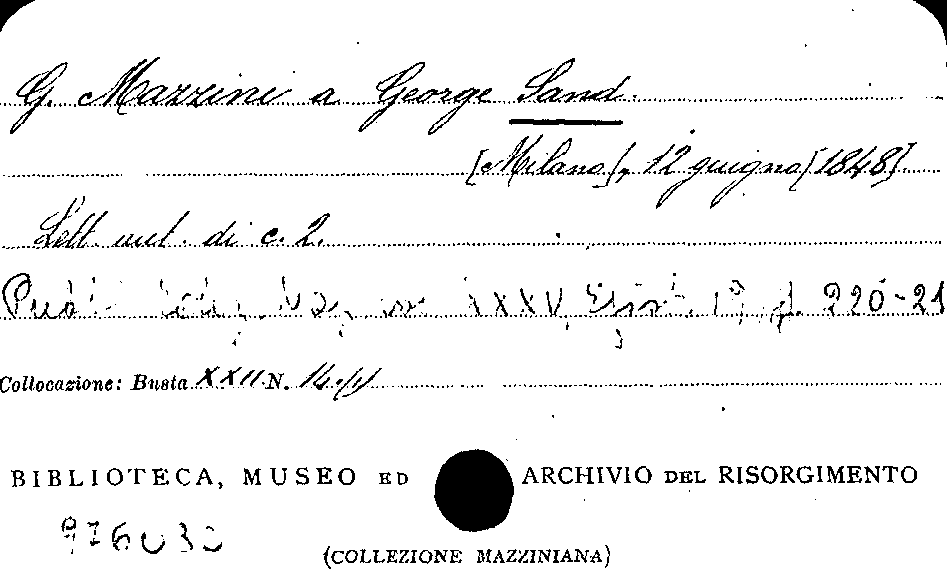 G. Mazzini a George Sand.
[Milano], 12 giugno [1848].
Lett. aut. di c. 2.
XXXV, 220-21
Collocazione: Busta XXII N. 14
BIBLIOTECA, MUSEO ED ARCHIVIO DEL RISORGIMENTO
(COLLEZIONE MAZZINIANA)